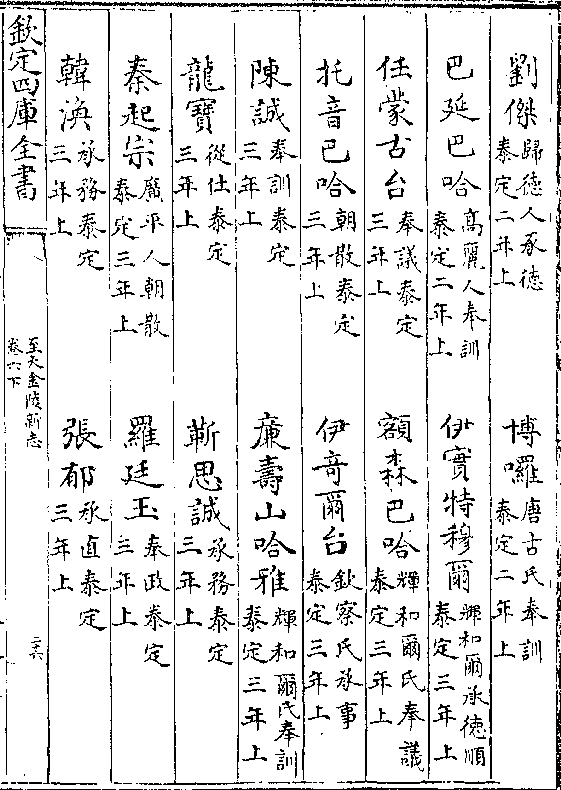 劉傑歸德人承德泰定二年上　博囉唐古氏奉訓泰定二年上
巴延巴哈高麗人奉訓泰定二年上　伊實特穆爾輝和爾承德順泰定三年上
任蒙古台奉議泰定三年上　額森巴哈輝和爾氏奉議泰定三年上
托音巴哈朝散泰定三年上　伊奇爾台欽察氏承事泰定三年上
陳誠奉訓泰定三年上　廉壽山哈雅輝和爾氏奉訓泰定三年上
龍寶從仕泰定三年上　靳思誠承務泰定三年上
秦起宗廣平人朝散泰定三年上　羅廷玉奉政泰定三年上
韓渙承務泰定三年上　張郁承直泰定三年上
欽定四庫全書　至大金陵新志卷六下　二六